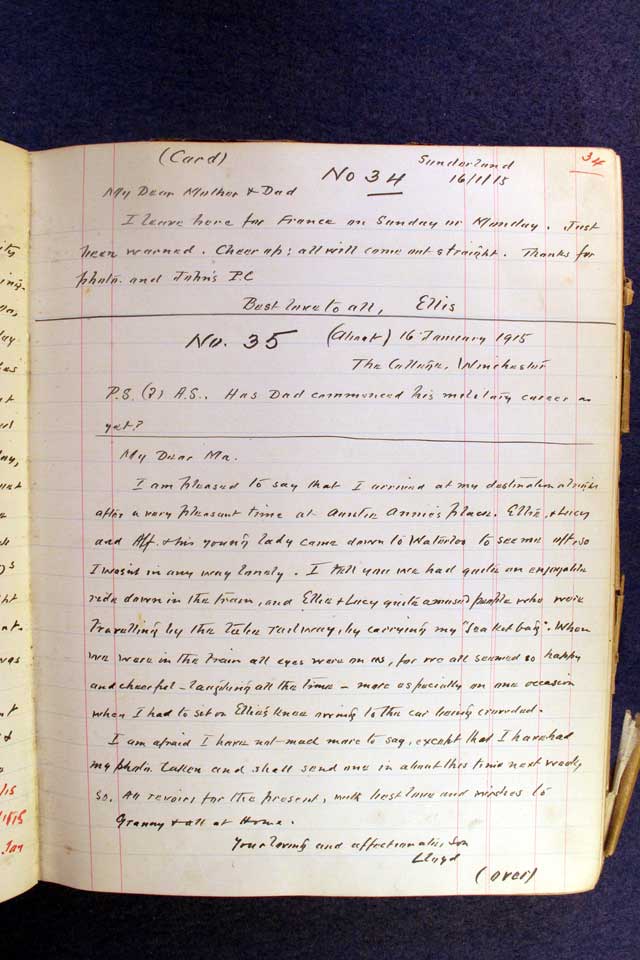 34
(Card)
Sunderland
No 34
16/1/15
My Dear Mother & Dad
I leave here for France on Sunday or Monday. Just
been warned. Cheer up; all will come out straight. Thanks for
photo. and John's P.C
Best love to all, Ellis
No. 35 (About) 16 January 1915
The College, Winchester
P.S. (?) A.S.. Has Dad commenced his military career as
yet?
My Dear Ma.
I am pleased to say that I arrived at my destination alright
after a very pleasant time at Auntie Annie's place. Ellie, & Lucy
and Alf. & his young lady came down to Waterloo to see me off so
I wasn't in any way lonely. I tell you we had quite an enjoyable
ride down in the train, and Ellie & Lucy quite amused people who were
travelling by the tube railway, by carrying my "sea kit bag". When
we were in the train all eyes were on us, for we all seemed so happy
and cheerful - laughing all the time - more especially on one occasion
when I had to sit on Ellie's knee owing to the car being crowded.
I am afraid I have not much more to say, except that I have had
my photo. taken and shall send one in about this time next week,
so. Au revoir for the present, with best love and wishes to
Granny & all at Home.
Your loving and affectionate, Son
Lloyd
(over)
/15
Jan